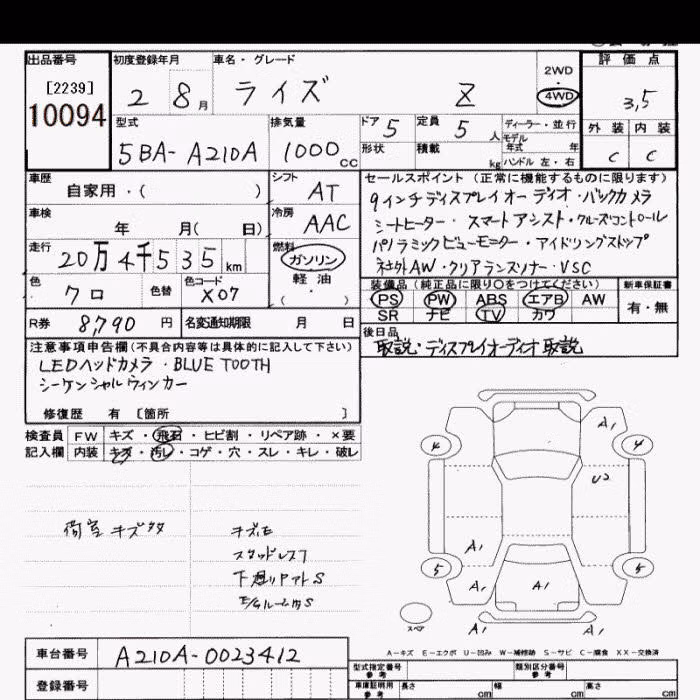 出品番号 初度登録年月 車名・グレード 2WD 評価点
[2239] 2 8月 ライズ Z 4WD 3,5
10094
型式 排気量 ドア 5 定員 5人 ディーラー・並行 外装 内装
モデル年式 年
5BA-A210A 1000cc 形状 積載 kg ハンドル 左・右 C C
車歴 シフト セールスポイント(正常に機能するものに限ります)
自家用・( ) AT 9インチディスプレイオーディオ・バックカメラ
車検 冷房 シートヒーター・スマートアシスト・クルーズコントロール
年 月( 日) AAC パノラミックビューモニター・アイドリングストップ
走行 燃料 社外AW・クリアランスソナー・VSC
20万4千535km ガソリン
色 色替 色コード 軽油 装備品(純正品に限り○をつけてください) 新車保証書
クロ X07 ( ) PS PW ABS エアB AW 有・無
SR ナビ TV カワ
R券 8,790円 名変通知期限 月 日 後日品
取説・ディスプレイオーディオ取説
注意事項申告欄(不具合内容等は具体的に記入して下さい)
LEDヘッドカメラ・BLUE TOOTH
シーケンシャルウィンカー
修復歴 有 [箇所 ]
検査員 FW キズ・飛石・ヒビ割・リペア跡・×要
記入欄 内装 キズ・汚レ・コゲ・穴・スレ・キレ・破レ
A1
4 4
U2
荷室 キズ タタ キズモ
スタッドレス7
A1
下廻リ アト S
5 5
A1 A1 A1
E/GルームS
スペア
A1 A1
A-キズ E-エクボ U-凹み W-補修跡 S-サビ C-腐食 XX-交換済
車台番号 A210A-0023412
型式指定番号 参考 類別区分番号 参考
登録番号 車庫証明用 参考 長さ cm 幅 cm 高さ cm